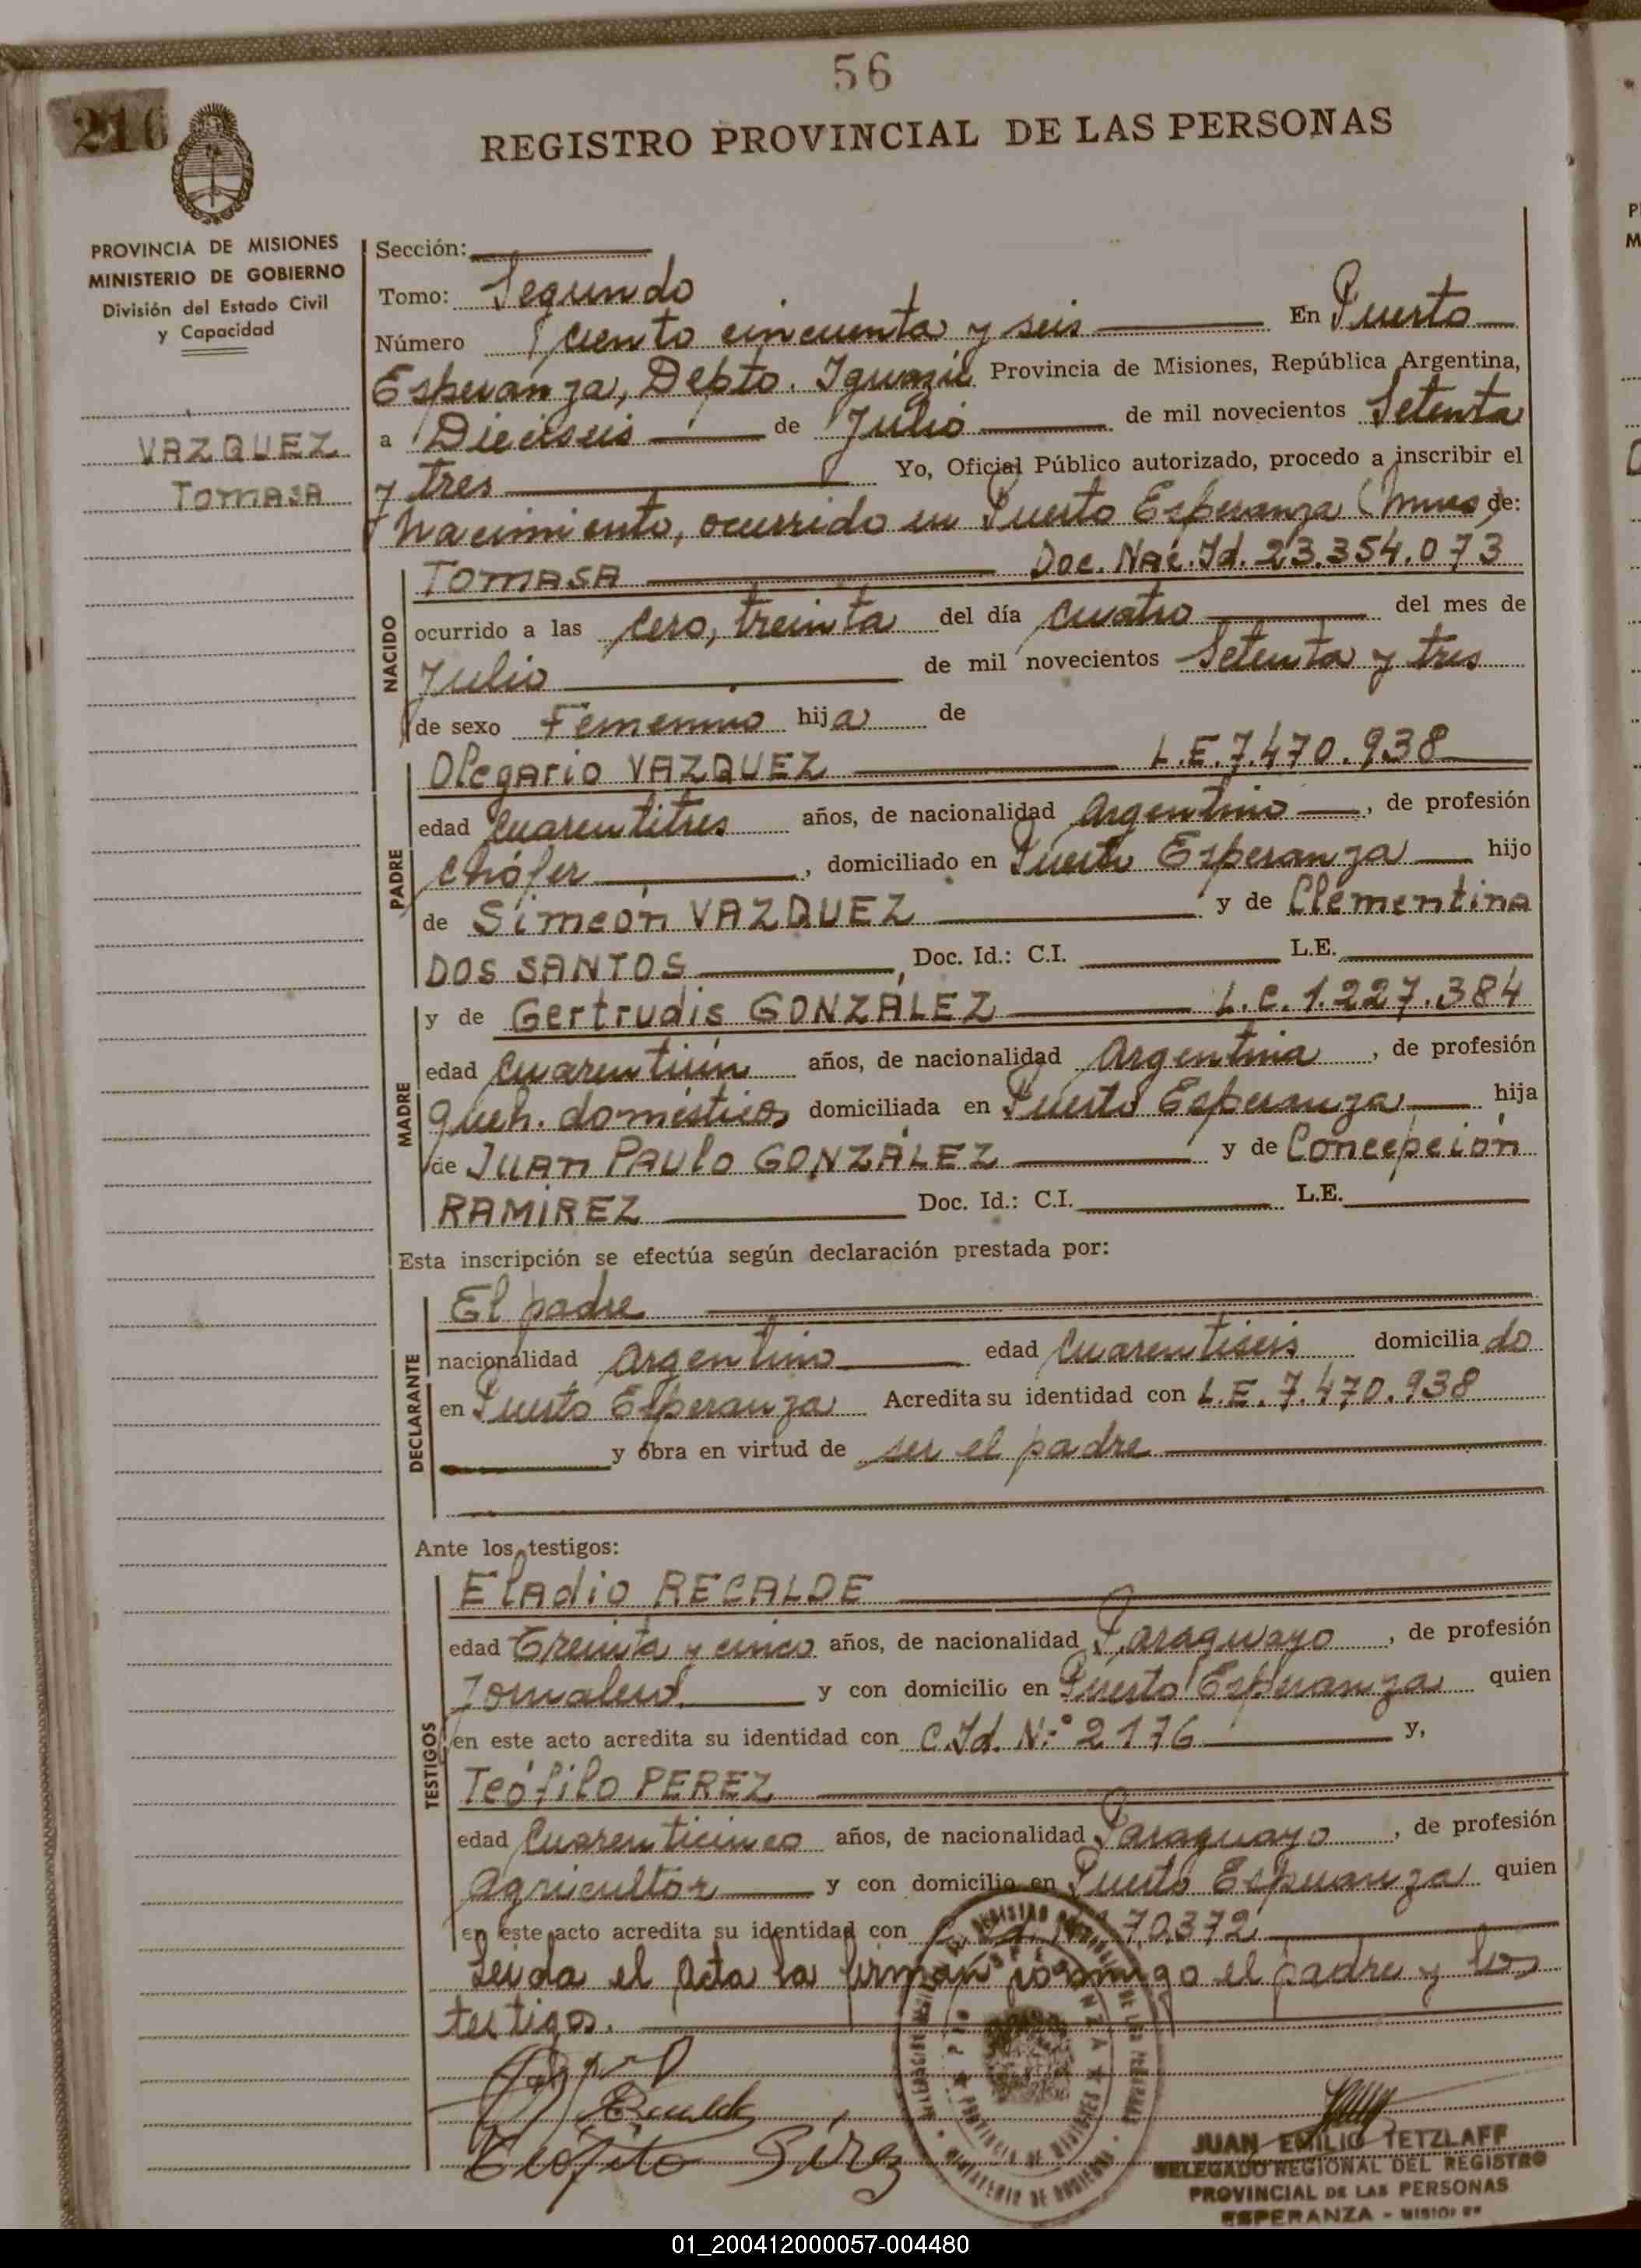 56
216
REGISTRO PROVINCIAL DE LAS PERSONAS
PROVINCIA DE MISIONES
MINISTERIO DE GOBIERNO
División del Estado Civil
y Capacidad
VAZQUEZ
TOMASA
Sección:
Tomo: Segundo
Número ciento cincuenta y seis En Puerto
Esperanza, Depto. Iguazú Provincia de Misiones, República Argentina,
a Dieciseis de Julio de mil novecientos Setenta
y tres Yo, Oficial Público autorizado, procedo a inscribir el
Nacimiento, ocurrido en Puerto Esperanza (Mnes) de:
NACIDO
TOMASA Doc. Nac. Id. 23.354.073
ocurrido a las Cero, treinta del día cuatro del mes de
Julio de mil novecientos Setenta y tres
de sexo Femenino hija de
PADRE
Olegario VAZQUEZ L.E. 7.470.938
edad cuarentitres años, de nacionalidad Argentino, de profesión
Chófer, domiciliado en Puerto Esperanza hijo
de Simeón VAZQUEZ y de Clementina
DOS SANTOS, Doc. Id.: C.I. L.E.
MADRE
y de Gertrudis GONZÁLEZ L.C. 1.227.384
edad cuarentiún años, de nacionalidad Argentina, de profesión
Queh. domésticos domiciliada en Puerto Esperanza hija
de JUAN PAULO GONZÁLEZ y de Concepción
RAMIREZ Doc. Id.: C.I. L.E.
Esta inscripción se efectúa según declaración prestada por:
DECLARANTE
El padre
nacionalidad Argentino edad cuarentiseis domiciliado
en Puerto Esperanza Acredita su identidad con L.E. 7.470.938
y obra en virtud de ser el padre
Ante los testigos:
TESTIGOS
Eladio RECALDE
edad Treinta y cinco años, de nacionalidad Paraguayo, de profesión
Jornalero y con domicilio en Puerto Esperanza quien
en este acto acredita su identidad con C.Id. N.° 2176 y,
Teófilo PEREZ
edad cuarenticinco años, de nacionalidad Paraguayo, de profesión
Agricultor y con domicilio en Puerto Esperanza quien
en este acto acredita su identidad con 70.372
Leida el Acta la firman conmigo el padre y los
testigos.
Teófilo Pérez
JUAN EMILIO TETZLAFF
DELEGADO REGIONAL DEL REGISTRO
PROVINCIAL DE LAS PERSONAS
ESPERANZA - MISIONES
01_200412000057-004480